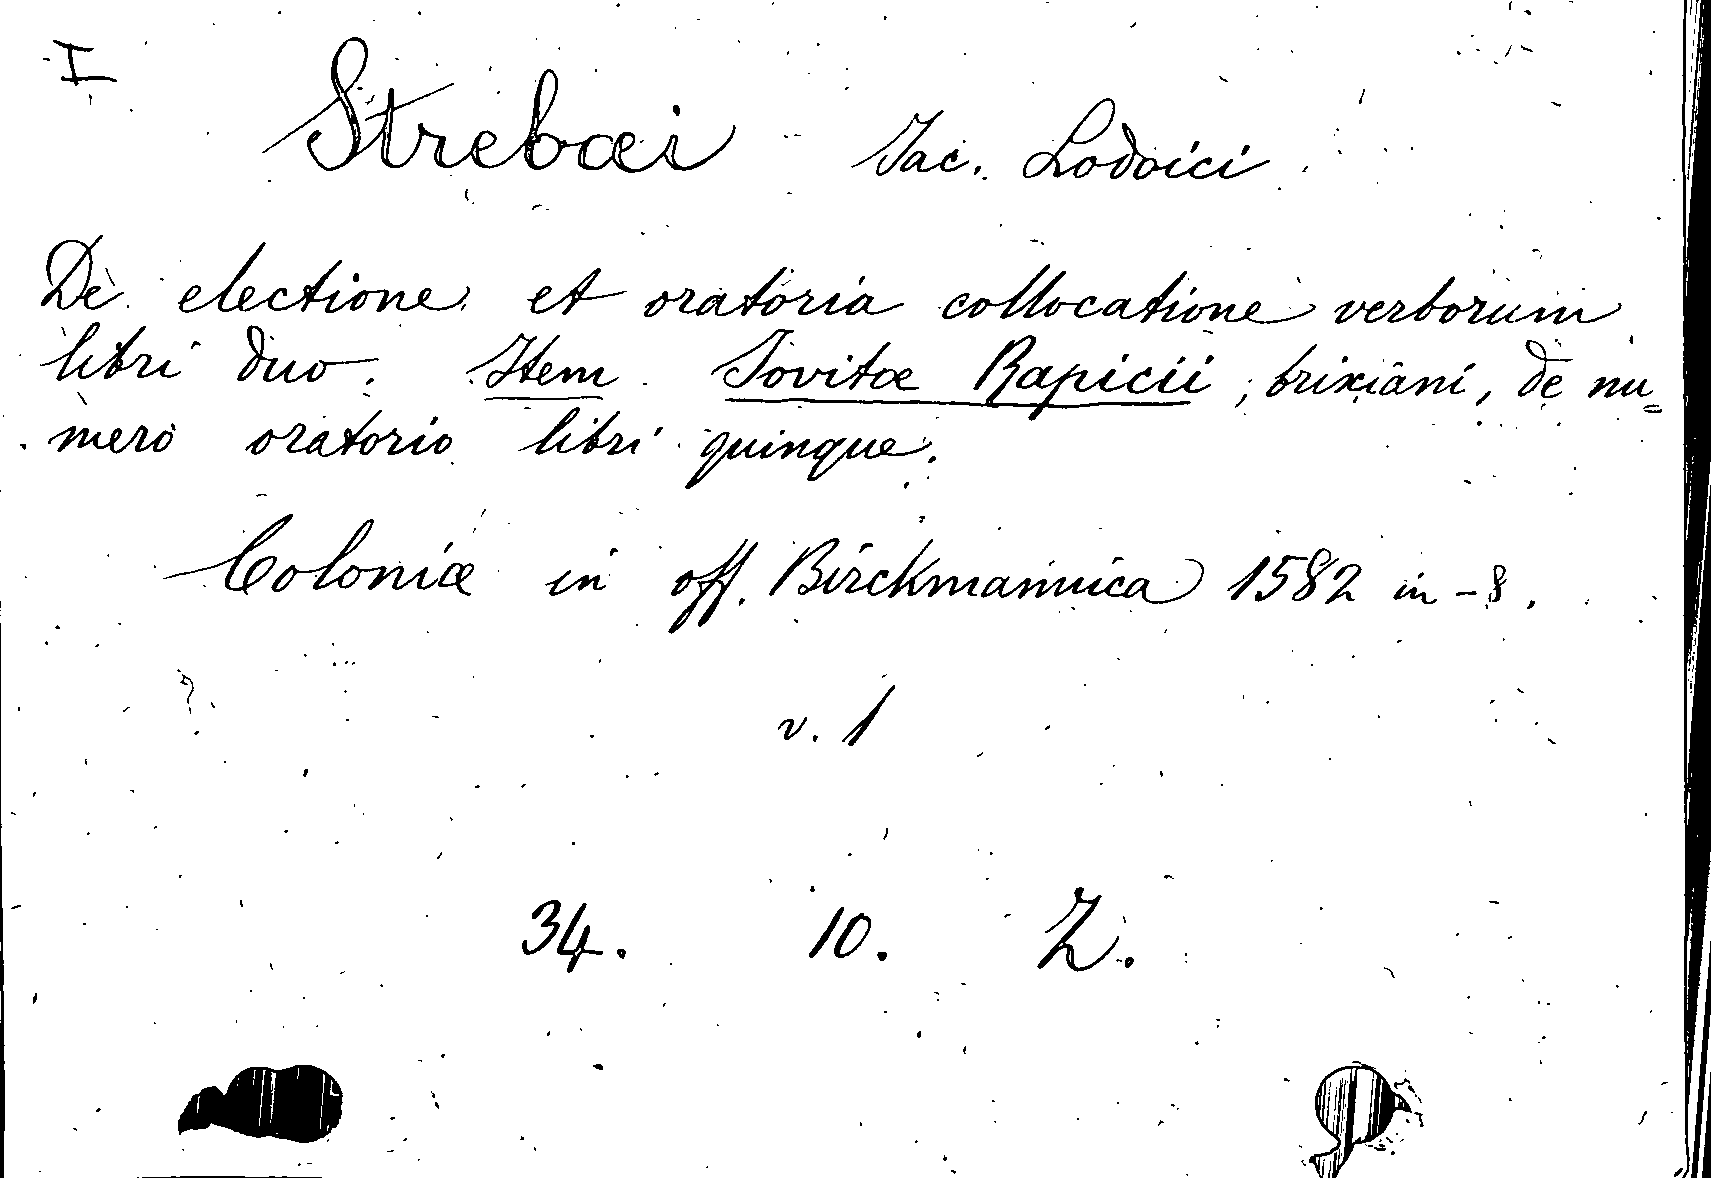 I
Strebæi Jac. Lodoici
De electione et oratoria collocatione verborum
libri duo. Item Jovitæ Rapicii, brixiani, de nu=
mero oratorio libri quinque.
Coloniæ in off. Birckmannica 1582 in-8.
v. 1
34. 10. Z.